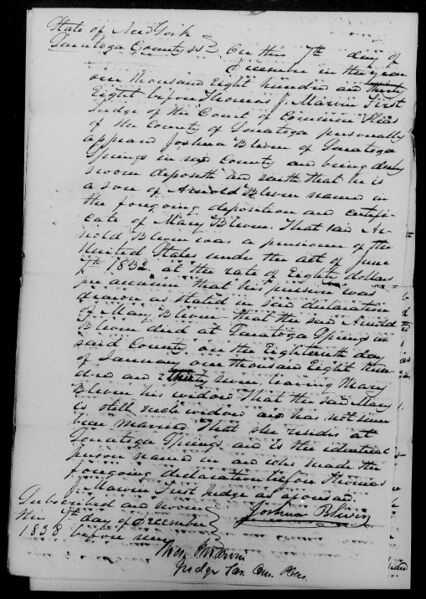 State of New York
Saratoga County ss On this 7th day of
December in the year
one thousand Eight hundred and Thirty
Eight before Thomas J. Marvin First
Judge of the Court of Common Pleas
of the County of Saratoga personally
appeared Joshua Bliven of Saratoga
Springs in said County and being duly
sworn deposeth and saith that he is
a son of Arnold Bliven named in
the foregoing deposition and certifi-
cate of Mary Bliven. That said Ar-
nold Bliven was a pensioner of the
United States under the act of June
7th 1832 at the rate of Eighty dollars
per annum that his pension was
drawn as stated in said declaration
of Mary Bliven that the said Arnold
Bliven died at Saratoga Springs in
said County on the Eighteenth day
of January one thousand Eight hun
dred and thirty seven leaving Mary
Bliven his widow That the said Mary
is still such widow and has not since
been married That she resides at
Saratoga Springs and is the identical
person named in and who made the
foregoing declaration before Thomas
J. Marvin First Judge as aforesaid.
Subscribed and sworn Joshua Bliven
this 7th day of December
1838 before me
Thos J Marvin
Judge Sar. Com. Pleas.